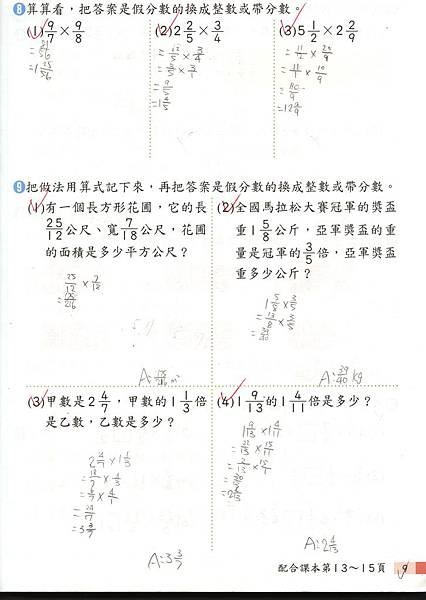 8 算算看，把答案是假分數的換成整數或帶分數。
(1) 9/7 × 9/8
= 81/56
= 1 25/56
(2) 2 2/5 × 3/4
= 12/5 × 3/4
= 3/5 × 3/1
= 9/5
= 1 4/5
(3) 5 1/2 × 2 2/9
= 11/2 × 20/9
= 11/1 × 10/9
= 110/9
= 12 2/9
9 把做法用算式記下來，再把答案是假分數的換成整數或帶分數。
(1) 有一個長方形花圃，它的長
25/12 公尺、寬 7/18 公尺，花圃
的面積是多少平方公尺？
25/12 × 7/18
(2) 全國馬拉松大賽冠軍的獎盃
重 1 5/8 公斤，亞軍獎盃的重
量是冠軍的 3/5 倍，亞軍獎盃
重多少公斤？
1 5/8 × 3/5
= 13/8 × 3/5
= 39/40
A: 39/40 kg
(3) 甲數是 2 4/7，甲數的 1 1/3 倍
是乙數，乙數是多少？
2 4/7 × 1 1/3
= 18/7 × 4/3
= 6/7 × 4/1
= 24/7
= 3 3/7
A: 3 3/7
(4) 1 9/13 的 1 4/11 倍是多少？
1 9/13 × 1 4/11
= 22/13 × 15/11
= 2/13 × 15/1
= 30/13
= 2 4/13
A: 2 4/13
配合課本第13～15頁 9